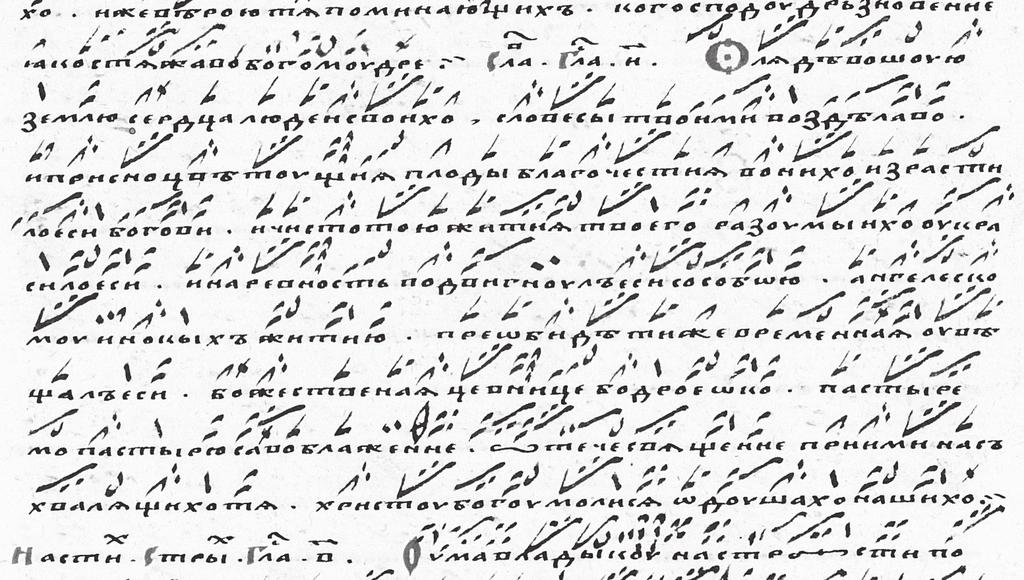 хо . ижевѣроютѧпоминающихъ . когосподоудрьзновение
ꙗкостѧжавобогомоудре : ~ Сла . Гла . и . Олѧдѣвошоую
землюсердцалюдеисвоихо , словесытвоимивоздѣлаво .
иприсноцвѣтоущиѧ плодыблагочестиѧ вонихоизрасти
лоесибогови . ичистотоюжитиѧтвоего разоумыихооукра
силоеси . инаревностьподвигноулъесисособѡю . ангелеско
моуиноцыхъжитию . преѡбидѣтижевременнаѧ оувѣ
щалъеси . божественаѧцевницебодроешко . пастыре
мопастырюсавоблажение . ѡтечесвѧщение прииминасъ
хвалѧщихотѧ . христоубогоумолисѧ ѡдоушахонашихо ~
Насти х . Стры х . Гла . в . Оумавладыкоунастроѧ сти по